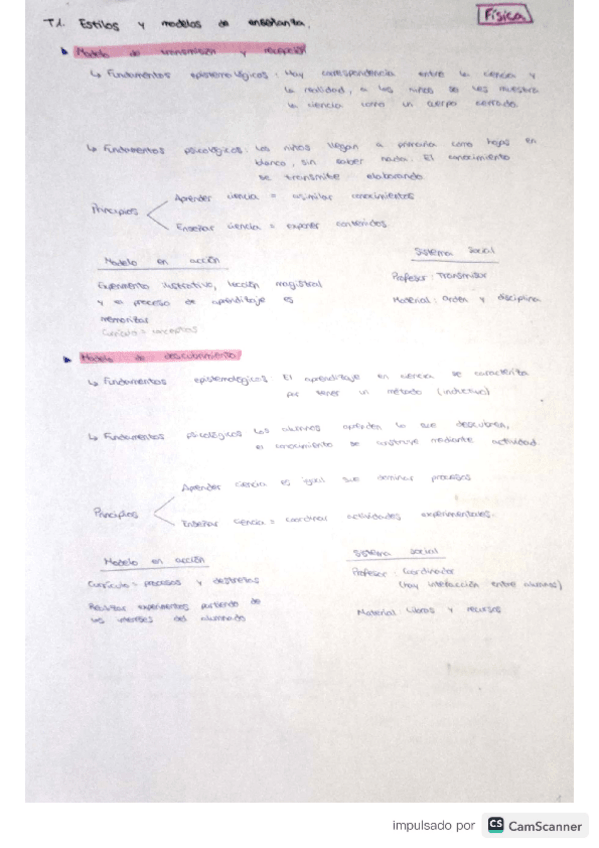 Física
T.1. Estilos y modelos de enseñanza.
Modelo de transmisión y recepción
↳ Fundamentos epistemológicos: Hay correspondencia entre la ciencia y
la realidad, a los niños se les muestra
la ciencia como un cuerpo cerrado.
↳ Fundamentos psicológicos: Los niños llegan a primaria como hojas en
blanco, sin saber nada. El conocimiento
se transmite elaborando.
Principios
Aprender ciencia = asimilar conocimientos
Enseñar ciencia = exponer contenidos
Modelo en acción
Experimento ilustrativo, lección magistral
y el proceso de aprendizaje es
memorizar
Currículo = conceptos
Sistema social
Profesor: Transmisor
Material: Orden y disciplina
Modelo de descubrimiento
↳ Fundamentos epistemológicos: El aprendizaje en ciencia se caracteriza
por tener un método (inductivo)
↳ Fundamentos psicológicos Los alumnos aprenden lo que descubren,
el conocimiento se construye mediante actividad.
Principios
Aprender ciencia es igual que dominar procesos
Enseñar ciencia = coordinar actividades experimentales.
Modelo en acción
Currículo = procesos y destrezas
Realizar experimentos partiendo de
los intereses del alumnado
Sistema social
Profesor: Coordinador
(Hay interacción entre alumnos)
Material: Libros y recursos
impulsado por CS CamScanner